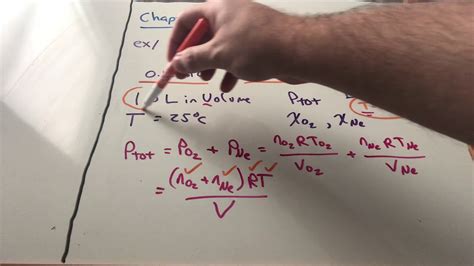 Chap
ex/
0.
1.0 L in Volume P_tot
T = 25°C χ_O₂ , χ_Ne
P_tot = P_O₂ + P_Ne = n_O₂ R T_O₂ / V_O₂ + n_Ne R T_Ne / V_Ne
= (n_O₂ + n_Ne) R T / V